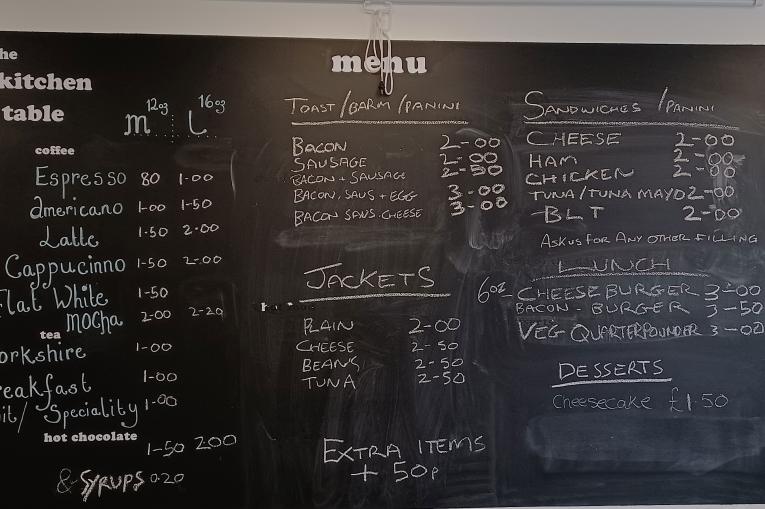 the
kitchen
table
12oz 16oz
m L
coffee
Espresso 80 1-00
americano 1-00 1-50
Latte 1-50 2-00
Cappucinno 1-50 2-00
Flat White 1-50
mocha 2-00 2-20
tea
orkshire 1-00
reakfast 1-00
it/ Speciality 1-00
hot chocolate
1-50 200
& SYRUPS 0.20
menu
TOAST/BARM/PANINI
BACON 2-00
SAUSAGE 2-00
BACON + SAUSAGE 2-50
BACON, SAUS + EGG 3-00
BACON SAUS-CHEESE 3-00
JACKETS
PLAIN 2-00
CHEESE 2-50
BEANS 2-50
TUNA 2-50
EXTRA ITEMS
+ 50p
SANDWICHES /PANINI
CHEESE 2-00
HAM 2-00
CHICKEN 2-00
TUNA/TUNA MAYO 2-00
BLT 2-00
ASK US FOR ANY OTHER FILLING
LUNCH
6oz CHEESE BURGER 3-00
BACON - BURGER 3-50
VEG QUARTERPOUNDER 3-00
DESSERTS
Cheesecake £1.50